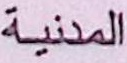 المدنية